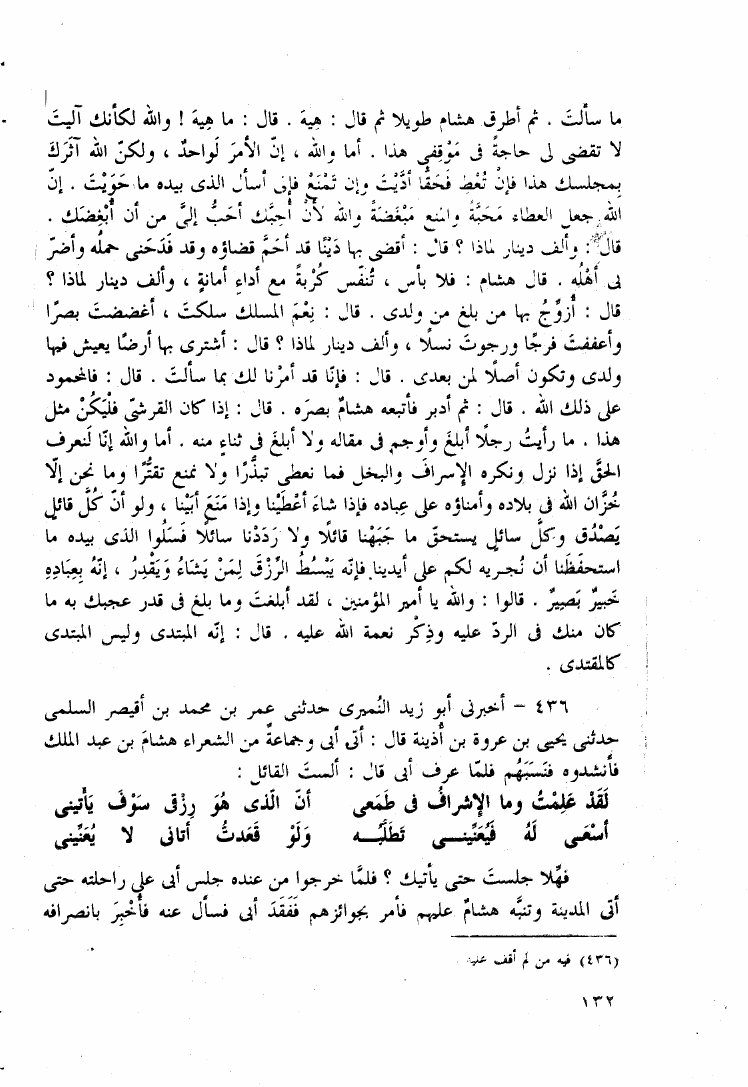 ما سألتَ . ثم أطرق هشام طويلا ثم قال : هِيهَ . قال : ما هِيهَ ! والله لكأنك آليتَ
لا تقضى لى حاجةً فى مَوْقِفى هذا . أما والله ، إنّ الأمرَ لَواحدٌ ، ولكنّ الله آثَرَكَ
بمجلسك هذا فإنْ تُعْطِ فَحَقًّا أدَّيْتَ وإن تَمْنَعْ فإنى أسأل الذى بيده ما حَوَيْتَ . إنّ
الله جعل العطاء مَحَبَّةً والمنع مَبْغَضَةً والله لأنْ أُحِبَّك أحَبُّ إلىَّ من أن أُبْغِضَك .
قال : وألف دينار لماذا ؟ قال : أقضى بها دَيْنًا قد أحَمَّ قضاؤه وقد فَدَحَنى حملُه وأضرّ
بى أهْلُه . قال هشام : فلا بأس ، تُنَفّس كُرْبةً مع أداءِ أمانةٍ ، وألف دينار لماذا ؟
قال : أُزوِّجُ بها من بلغ من ولدى . قال : نِعْمَ المسلك سلكتَ ، أغضضتَ بصرًا
وأعففتَ فرجًا ورجوتَ نسلًا ، وألف دينار لماذا ؟ قال : أشترى بها أرضًا يعيش فيها
ولدى وتكون أصلًا لمن بعدى . قال : فإنّا قد أمرْنا لك بما سألتَ . قال : فالمحمود
على ذلك الله . قال : ثم أدبر فأتبعه هشامٌ بصرَه . قال : إذا كان القرشىّ فلْيَكُنْ مثل
هذا . ما رأيتُ رجلًا أبلغ وأوجم فى مقاله ولا أبلغَ فى ثناءٍ منه . أما والله إنّا لَنعرف
الحقَّ إذا نزل ونكره الإسرافَ والبخل فما نعطى تبذُّرًا ولا نمنع تقتُّرًا وما نحن إلّا
خُزَّان الله فى بلاده وأمناؤه على عِباده فإذا شاءَ أعْطَيْنا وإذا مَنَعَ أبَيْنا ، ولو أنّ كُلَّ قائلٍ
يَصْدُق وكلَّ سائلٍ يستحقّ ما جَبَهْنا قائلًا ولا رَدَدْنا سائلًا فَسَلُوا الذى بيده ما
استحفَظَنا أن نُجريه لكم على أيدينا فإنّه يَبْسُطُ الرِّزْقَ لِمَنْ يَشَاءُ وَيَقْدِرُ ، إنَّهُ بِعِبَادِهِ
خَبِيرٌ بَصِيرٌ . قالوا : والله يا أمير المؤمنين ، لقد أبلغتَ وما بلغ فى قدر عجبك به ما
كان منك فى الردّ عليه وذِكْر نعمة الله عليه . قال : إنّه المبتدى وليس المبتدى
كالمقتدى .
٤٣٦ – أخبرنى أبو زيد النُميرى حدثنى عمر بن محمد بن أقيصر السلمى
حدثنى يحيى بن عروة بن أُذينة قال : أتى أبى وجماعةٌ من الشعراء هشامَ بن عبد الملك
فأنشدوه فنَسَبَهُم فلمّا عرف أبى قال : ألستَ القائل :
لَقَدْ عَلِمْتُ وما الإشرافُ فى طَمَعى أنّ الّذى هُوَ رِزْقى سَوْفَ يَأْتينى
أسْعَى لَهُ فَيُعَنِّينى تَطَلُّبُه وَلَوْ قَعَدتُ أتانى لا يُعَنِّينى
فهّلا جلستَ حتى يأتيك ؟ فلمَّا خرجوا من عنده جلس أبى على راحلته حتى
أتى المدينة وتنبَّه هشامٌ عليهم فأمر بجوائزهم فَفَقَدَ أبى فسأل عنه فأُخْبِرَ بانصرافه
(٤٣٦) فيه من لم أقف عليه .
١٣٢